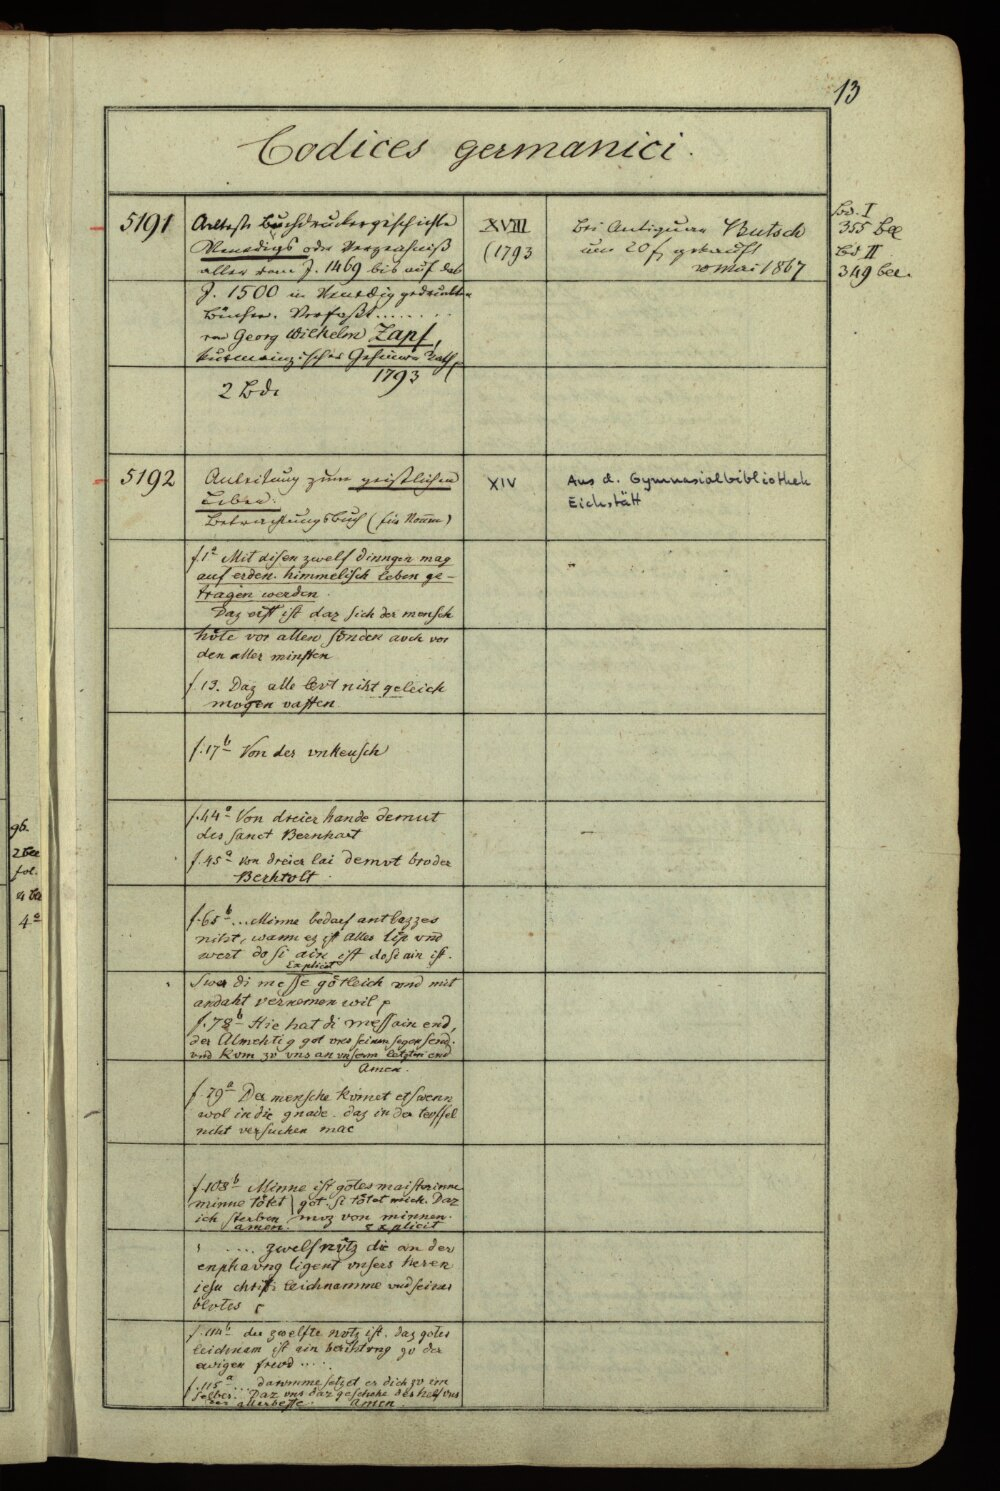 13
Codices germanici.
5191
Aelteste Buchdruckergeschichte
Venedigs oder Verzeichniß
aller vom J. 1469 bis auf das
J. 1500 in Venedig gedruckten
Bücher. Verfaßt.......
von Georg Wilhelm Zapf,
kurmainzischer Geheimer Rath
1793
2 Bde
XVIII
(1793
Bei Antiquar Kutsch
um 20 f. gekauft
Mai 1867
Bd. I
355 Bll
Bd II
349 Bll.
5192
Anleitung zum geistlichen
Leben.
Betrachtungsbuch (für Nonnen)
XIV
Aus d. Gymnasialbibliothek
Eichstätt
f.1a Mit disen zwelf dinngen mag
auf erden. himmelisch leben ge-
tragen werden.
Daz erst ist daz sich der mensch
hüte vor allen sünden auch vor
den aller minsten
f.13. Daz alle levt niht geleich
mugen vasten.
f.17b Von der vnkeusch
f.44a Von dreier hande demut
des sanct Bernhart
f.45a von dreier lai demvt broder
Berhtolt.
f.65b... Minne bedarf antlazzes
niht, wann ez ist alles lip vnd
wert do si ain ist do si ain ist.
Explicit
Swer di messe götleich vnd mit
andaht vernemen wil
f.78b Hie hat di mess ain end,
der Almehtig got vns seinen segen send.
vnd kom zv vns an vnserm letzten end
Amen.
f.79a Der mensche kvmet etswenn
wol in die gnade. daz in der tevffel
niht versuchen mac
f.108b Minne ist gotes maisterinne
minne tötet got. si tötet mich. Daz
ich sterben mvz von minnen.
amen. explicit
.... zwelf nütz die an der
enphavng ligent vnsers heren
iesu christi leichnamme vnd seines
blvtes
f.114b der zwelfte nvtz ist. daz gotes
leichnam ist ain berihtvng zv der
ewigen frevd.....
f.115a ... darvmme setzet er dich zv im
selber. Daz vns daz geschehe des helf vns
der allerbeste. Amen.
gb.
2 Bll
fol.
4o